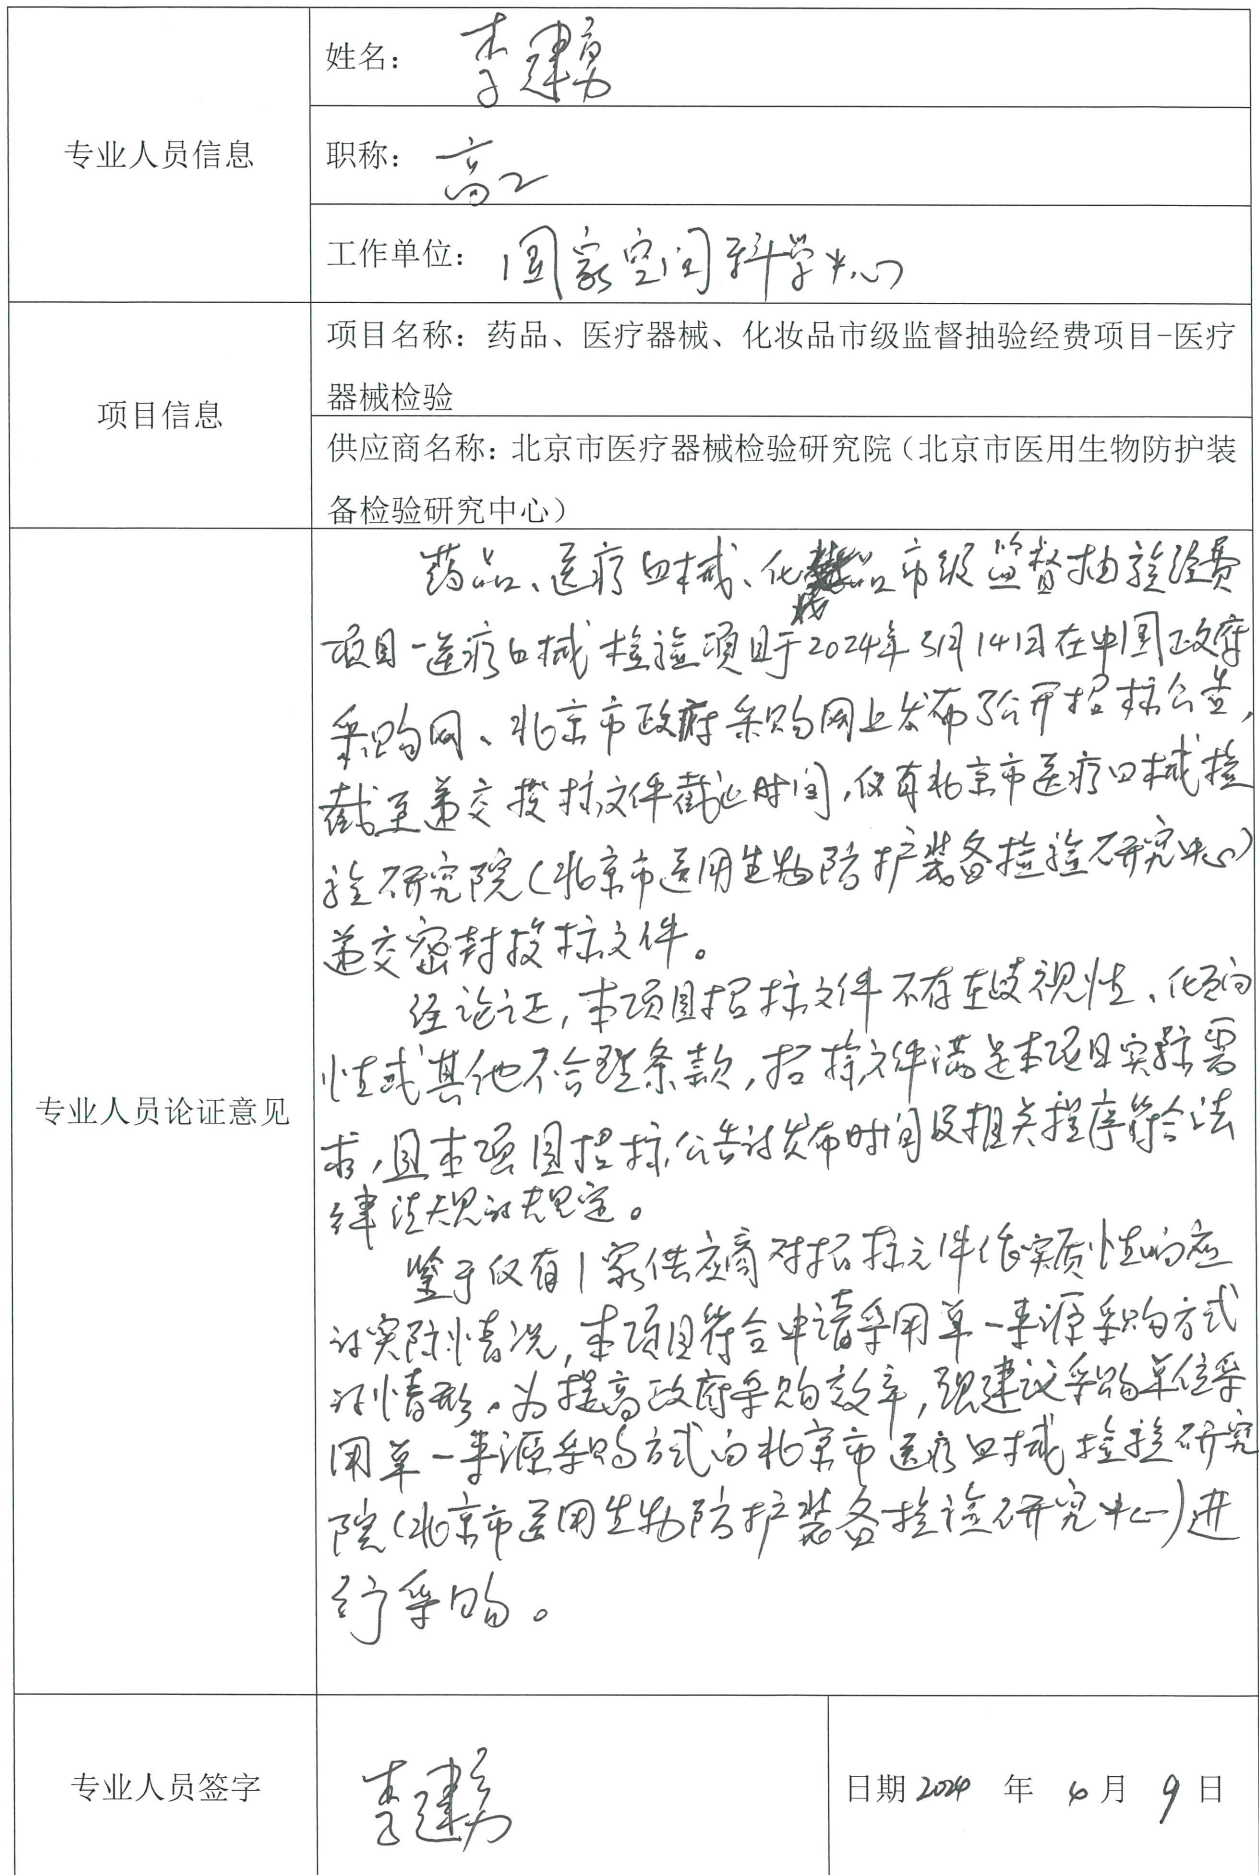 专业人员信息
姓名：李建勇
职称：高工
工作单位：国家空间科学中心
项目信息
项目名称：药品、医疗器械、化妆品市级监督抽验经费项目-医疗
器械检验
供应商名称：北京市医疗器械检验研究院（北京市医用生物防护装
备检验研究中心）
专业人员论证意见
药品、医疗器械、化妆品市级监督抽验经费
项目-医疗器械检验项目于2024年3月14日在中国政府
采购网、北京市政府采购网上发布了公开招标公告，
截至递交投标文件截止时间，仅有北京市医疗器械检
验研究院（北京市医用生物防护装备检验研究中心）
递交密封投标文件。
经论证，本项目招标文件不存在歧视性、倾向
性或其他不合理条款，招标文件满足本项目实际需
求，且本项目招标公告的发布时间及相关程序符合法
律法规的规定。
鉴于仅有1家供应商对招标文件作实质性响应
的实际情况，本项目符合申请采用单一来源采购方式
的情形。为提高政府采购效率，现建议采购单位采
用单一来源采购方式向北京市医疗器械检验研究
院（北京市医用生物防护装备检验研究中心）进
行采购。
专业人员签字
李建勇
日期 2024 年 4 月 9 日